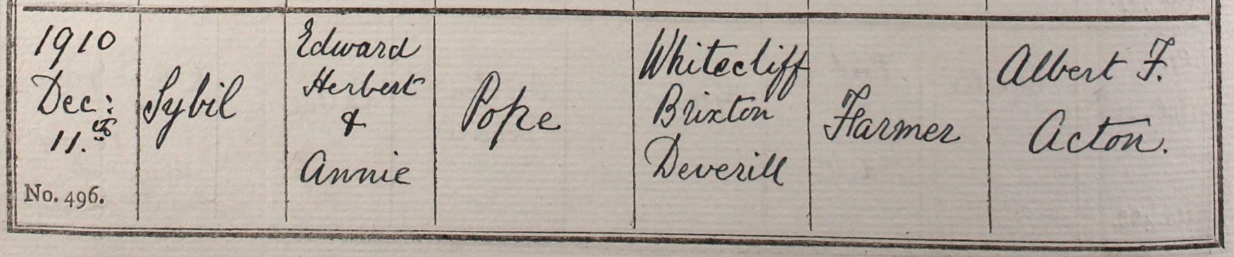 1910
Dec:
11.th
No. 496.
Sybil
Edward
Herbert
&
Annie
Pope
Whitecliff
Brixton
Deverill
Farmer
Albert F.
Acton.